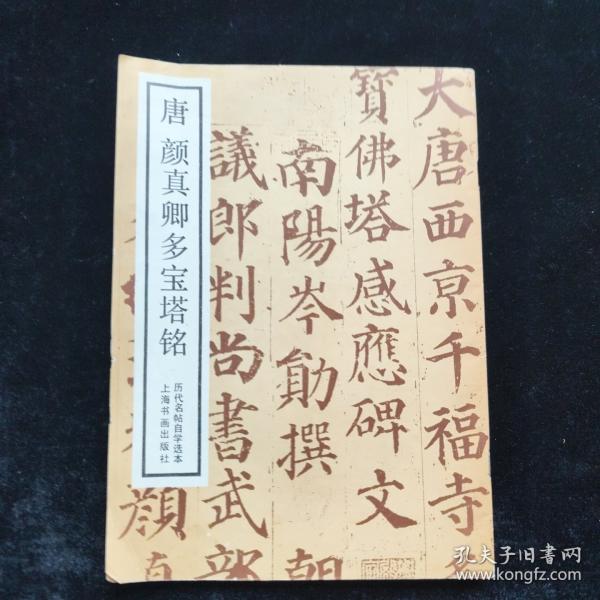 唐 颜真卿多宝塔铭
历代名帖自学选本
上海书画出版社
大唐西京千福寺多
寶佛塔感應碑文
南陽岑勛撰 朝
議郎判尚書武部
顏真
孔夫子旧书网
www.kongfz.com